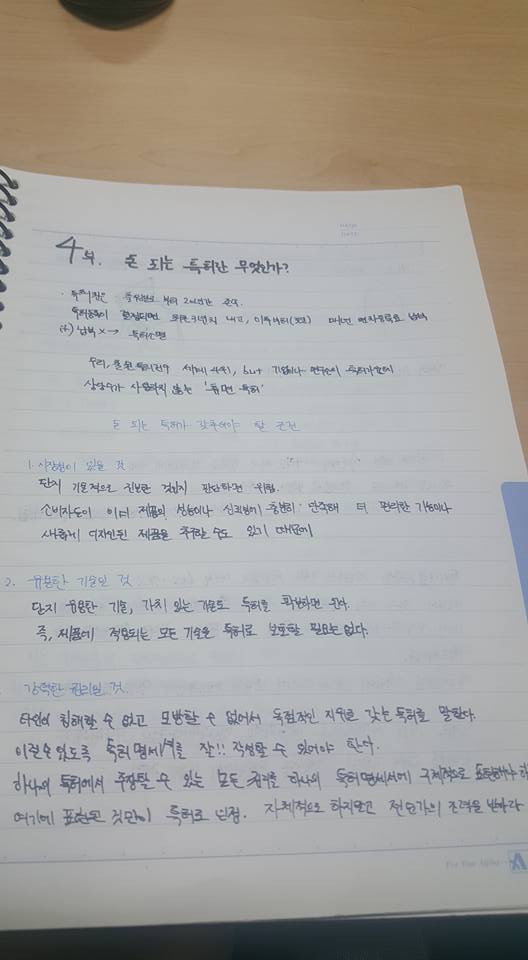 4부. 돈 되는 특허란 무엇인가?
· 특허권은 출원일로 부터 20년간 존속.
특허등록이 결정되면 최초 3년치 내고, 이후부터 매년 연차등록료 납부
납부 X → 특허소멸
우리, 출원 특허건수 세계 4위, but 기업이나 연구소의 특허가운데
상당수가 사용하지 않는 '휴면 특허'
돈 되는 특허가 갖추어야 할 조건
1. 시장성이 있을 것
단지 기술적으로 진보한 것인지 판단하면 위험.
소비자들이 이미 제품의 성능이나 신뢰성에 충분히 만족해 더 편리한 기능이나
새롭게 디자인된 제품을 추구할 수도 있기 때문에
2. 유용한 기술일 것
단지 유용한 기술, 가치 있는 기술도 특허를 확보하면 된다.
즉, 제품에 적용되는 모든 기술을 특허로 보호할 필요는 없다.
강력한 권리일 것.
타인이 침해할 수 없고 모방할 수 없어서 독점적인 지위를 갖는 특허를 말한다.
이럴 수 있도록 특허명세서를 잘!! 작성할 수 있어야 한다.
하나의 특허에서 주장할 수 있는 모든 권리를 하나의 특허명세서에 구체적으로 표현해나
여기에 표현된 것만이 특허로 인정. 자체적으로 하지말고 전문가의 조력을 받아라
For Your Alpha